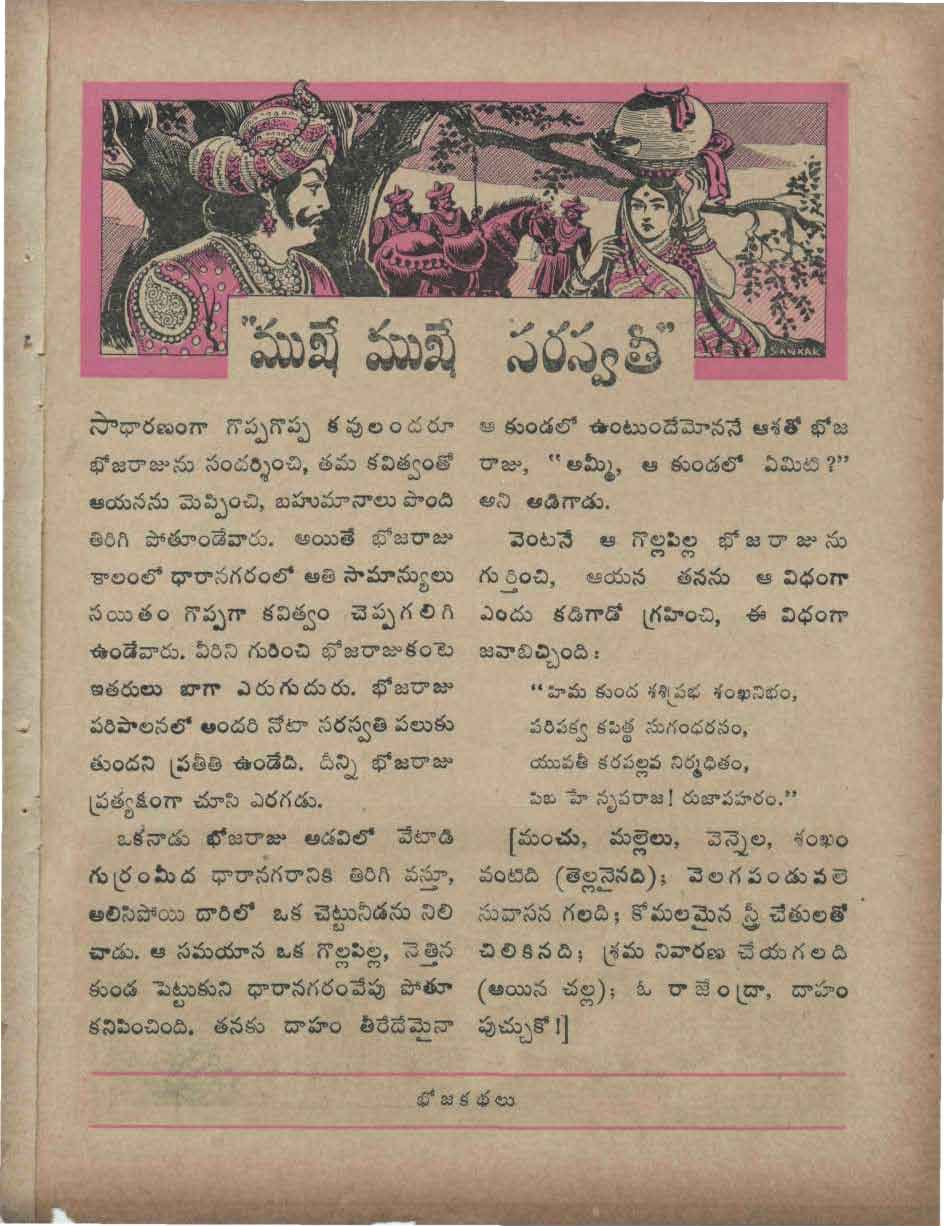 "ముఖే ముఖే సరస్వతీ"
SANKAR
సాధారణంగా గొప్పగొప్ప కవులందరూ
భోజరాజును సందర్శించి, తమ కవిత్వంతో
ఆయనను మెప్పించి, బహుమానాలు పొంది
తిరిగి పోతూండేవారు. అయితే భోజరాజు
కాలంలో ధారానగరంలో అతి సామాన్యులు
సయితం గొప్పగా కవిత్వం చెప్పగలిగి
ఉండేవారు. వీరిని గురించి భోజరాజుకంటె
ఇతరులు బాగా ఎరుగుదురు. భోజరాజు
పరిపాలనలో అందరి నోటా సరస్వతి పలుకు
తుందని ప్రతీతి ఉండేది. దీన్ని భోజరాజు
ప్రత్యక్షంగా చూసి ఎరగడు.
ఒకనాడు భోజరాజు అడవిలో వేటాడి
గుర్రంమీద ధారానగరానికి తిరిగి వస్తూ,
అలిసిపోయి దారిలో ఒక చెట్టునీడను నిలి
చాడు. ఆ సమయాన ఒక గొల్లపిల్ల, నెత్తిన
కుండ పెట్టుకుని ధారానగరంవేపు పోతూ
కనిపించింది. తనకు దాహం తీరేదేమైనా
ఆ కుండలో ఉంటుందేమోననే ఆశతో భోజ
రాజు, "అమ్మీ, ఆ కుండలో ఏమిటి?"
అని అడిగాడు.
వెంటనే ఆ గొల్లపిల్ల భోజరాజును
గుర్తించి, ఆయన తనను ఆ విధంగా
ఎందు కడిగాడో గ్రహించి, ఈ విధంగా
జవాబిచ్చింది:
"హిమ కుంద శశిప్రభ శంఖనిభం,
పరిపక్వ కపిత్థ సుగంధరసం,
యువతీ కరపల్లవ నిర్మథితం,
పిబ హే నృపరాజ! రుజాపహరం."
[మంచు, మల్లెలు, వెన్నెల, శంఖం
వంటిది (తెల్లనైనది); వెలగపండువలె
సువాసన గలది; కోమలమైన స్త్రీ చేతులతో
చిలికినది; శ్రమ నివారణ చేయగలది
(అయిన చల్ల); ఓ రాజేంద్రా, దాహం
పుచ్చుకో!]
భోజకథలు